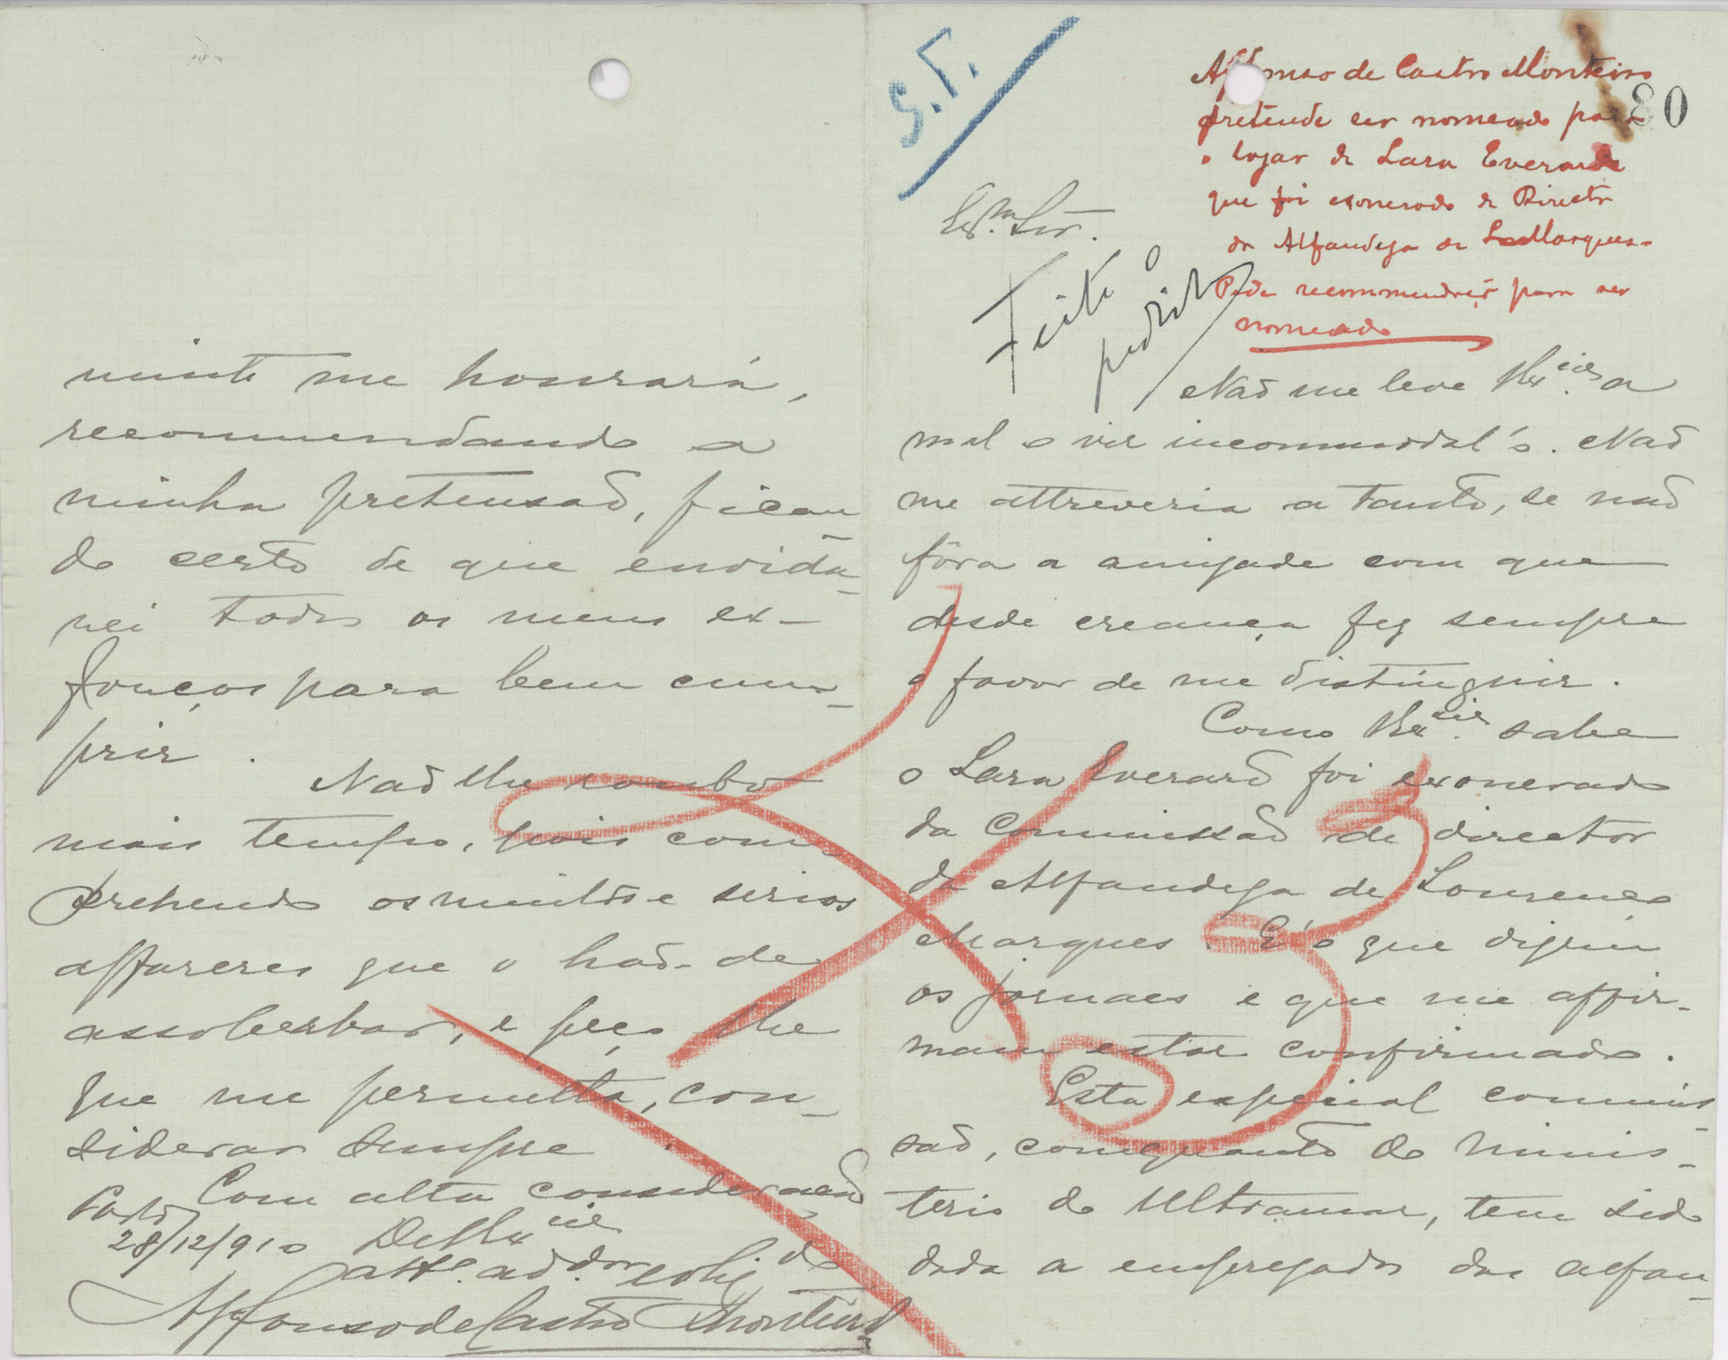 S.T.
Affonso de Castro Monteiro
pretende ser nomeado para
o logar de Lara Everard
que foi exonerado de Director
da Alfandega de L. Marques.
Pede recommendação para ser
nomeado
80
Ex.mo Snr.
Feito o
pedido
Não me leve V. Ex.cia a
mal o vir incommodal'o. Não
me attreveria a tanto, se não
fôra a amizade com que
desde creança fez sempre
o favor de me distinguir.
Como V. Ex.cia sabe
o Lara Everard foi exonerado
da commissão de director
da Alfandega de Lourenço
Marques. É o que dizem
os jornaes e que me affir-
mam estar confirmado.
Esta especial commis-
são, comquanto do minis-
terio do Ultramar, tem sido
dada a empregados das alfan-
mente me honrará,
recommendando a
minha pretensão, fican
do certo de que envida-
rei todos os meus ex-
forços para bem cum-
prir.
Não lhe roubo
mais tempo, pois com-
prehendo os muitos e serios
affazeres que o hão-de
assoberbar, e peço lhe
que me permitta, con-
siderar sempre
Com alta consideração
Porto
28/12/910
De V. Ex.cia
att.o ad.dor obrig.do
Affonso de Castro Monteiro